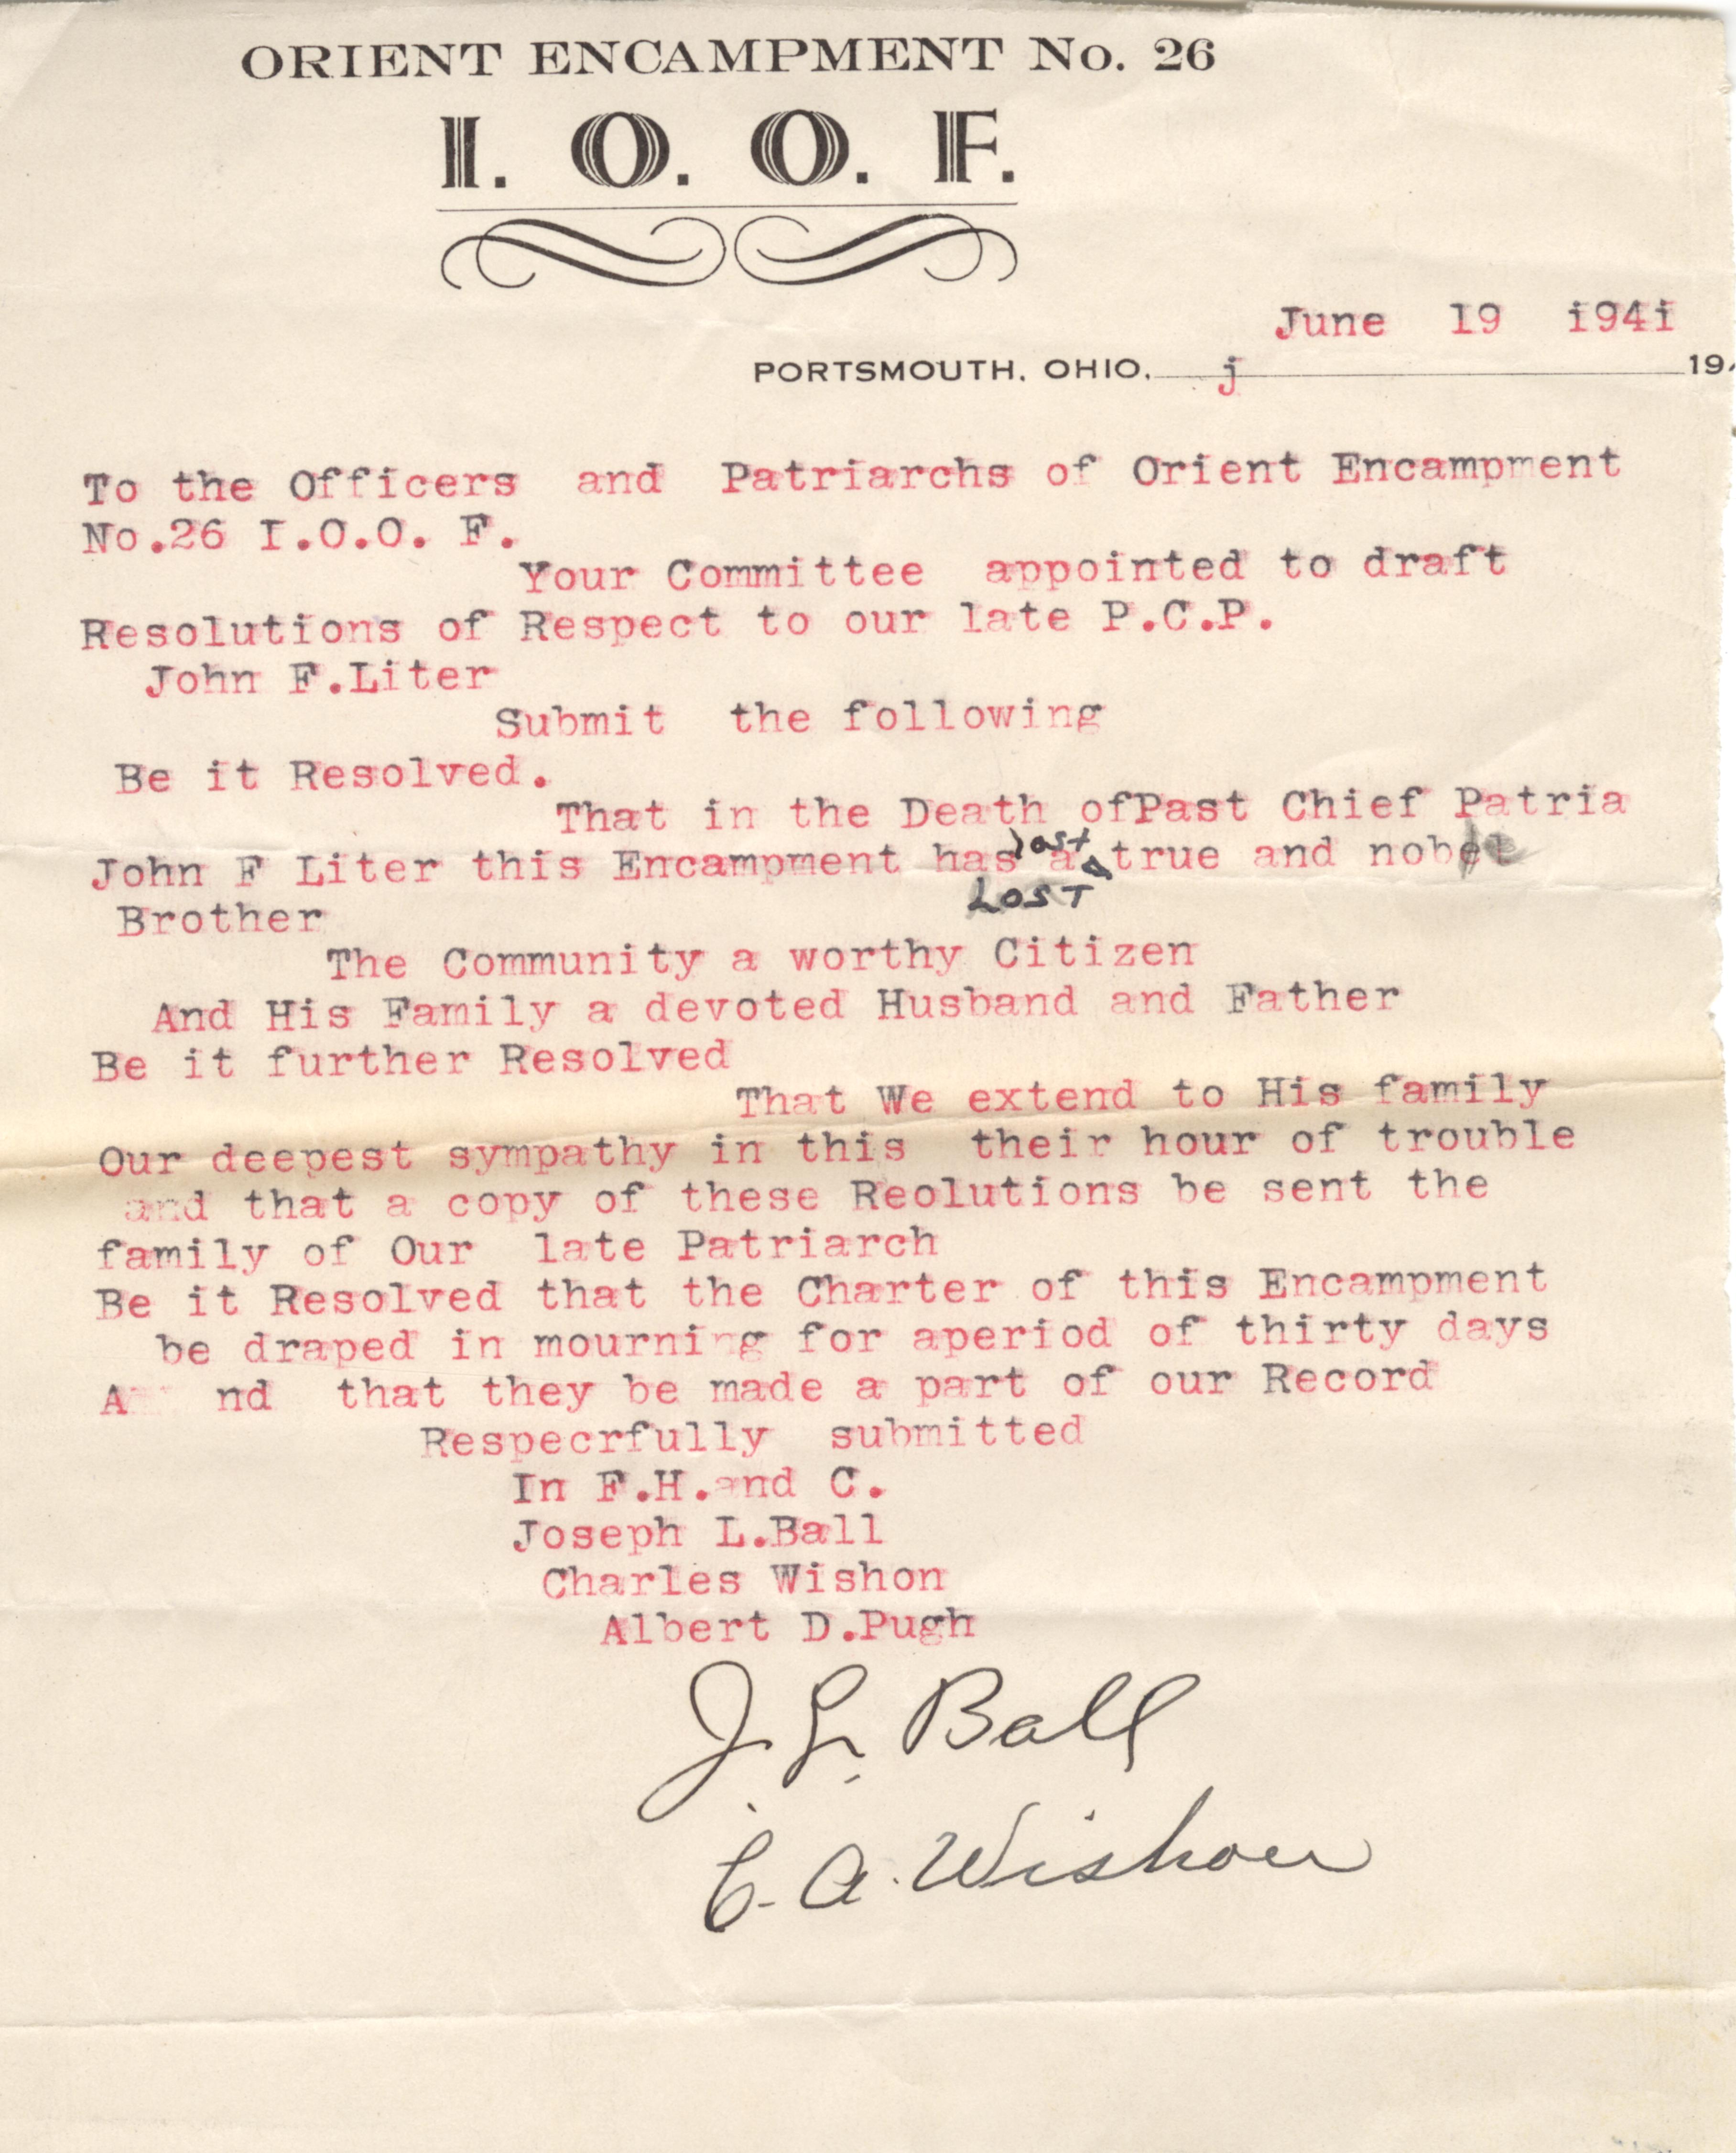 ORIENT ENCAMPMENT No. 26
I. O. O. F.
June 19 i94i
PORTSMOUTH, OHIO, j 19
To the Officers and Patriarchs of Orient Encampment
No.26 I.O.O. F.
Your Committee appointed to draft
Resolutions of Respect to our late P.C.P.
John F.Liter
Submit the following
Be it Resolved.
That in the Death ofPast Chief Patria
lost
John F Liter this Encampment has a true and
LOST
Brother
The Community a worthy Citizen
And His Family a devoted Husband and Father
Be it further Resolved
That We extend to His family
Our deepest sympathy in this their hour of trouble
and that a copy of these Reolutions be sent the
family of Our late Patriarch
Be it Resolved that the Charter of this Encampment
be draped in mourning for aperiod of thirty days
A nd that they be made a part of our Record
Respecrfully submitted
In F.H.and C.
Joseph L.Ball
Charles Wishon
Albert D.Pugh
J. L. Ball
C. A. Wishon